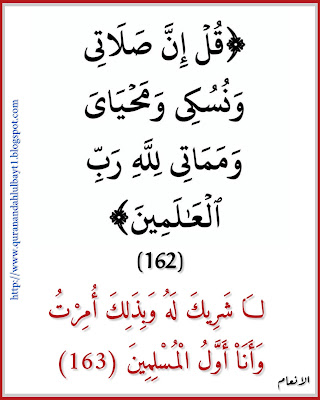 ﴿قُلۡ إِنَّ صَلَاتِى
وَنُسُكِى وَمَحۡيَاىَ
وَمَمَاتِى لِلَّهِ رَبِّ
ٱلۡعَـٰلَمِينَ﴾
(162)
لَا شَرِيكَ لَهُ وَبِذَلِكَ أُمِرْتُ
وَأَنَاْ أَوَّلُ الْمُسْلِمِينَ (163)
الانعام
http://www.quranandahlulbayt1.blogspot.com